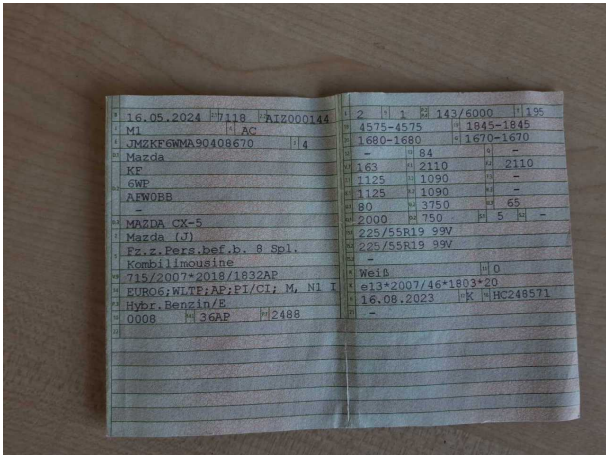 16.05.2024 7118 AIZ000144
M1 AC
JMZKF6WMA90408670 4
Mazda
KF
6WP
AFW0BB
-
MAZDA CX-5
Mazda (J)
Fz.z.Pers.bef.b. 8 Spl.
Kombilimousine
715/2007*2018/1832AP
EURO6;WLTP;AP;PI/CI; M, N1 I
Hybr.Benzin/E
0008 36AP 2488
2 1 143/6000 195
4575-4575 1845-1845
1680-1680 1670-1670
- 84 -
163 2110 2110
1125 1090 -
1125 1090 -
80 3750 65
2000 750 5 -
225/55R19 99V
225/55R19 99V
-
Weiß 0
e13*2007/46*1803*20
16.08.2023 K HC248571
-